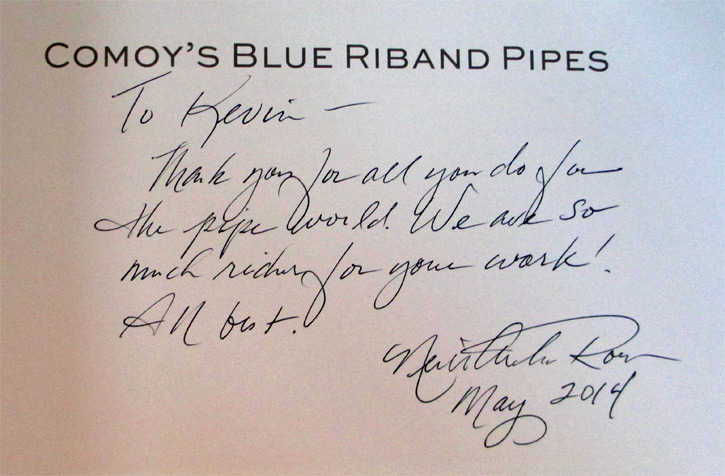 COMOY'S BLUE RIBAND PIPES
To Kevin —
Thank you for all you do for
the pipe world. We are so
much richer for your work!
All best.
May 2014